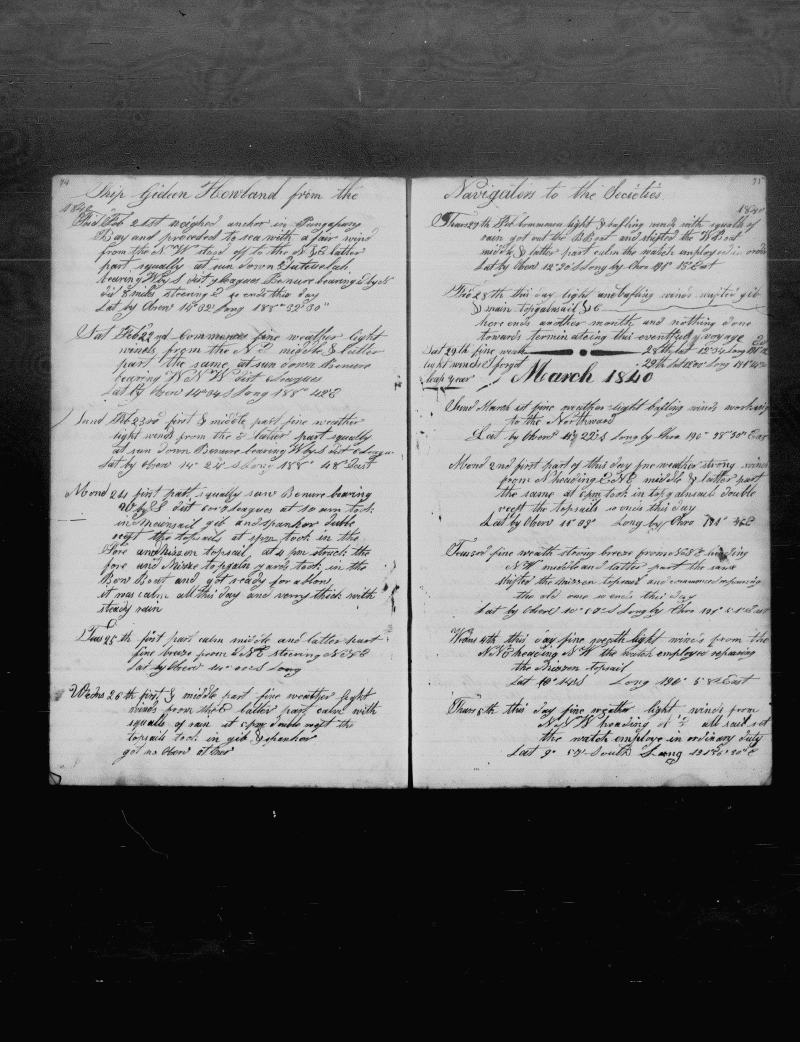 74
Ship Gideon Howland from the
1840
Frid Feb 21st weighed anchor in
Bay and proceeded to sea with a fair wind
from the N W stood off to the N & E latter
part squally at sun down
bearing W by S dist 7 leagues bearing E by N
dist 8 miles steering E so ends this day
Lat by Obser 14° 32 Long 188° 32' 30"
Sat Feb 22nd Commences fine weather light
winds from the N E middle & latter
part the same at sun down
bearing W N W dist leagues
Lat by Obser 14° 14 S Long 188° 42 E
Sund Feb 23rd first & middle part fine weather
light winds from the E latter part squally
at sun down bearing W by S dist 6 leagues
Lat by Obser 14° 24 S Long 188° 48 East
Mond 24 first part squally saw bearing
W by S dist 6 or 7 leagues at 10 am took
in mainsail gib and spanker double
reeft the topsails at 1 pm took in the
fore and mizzen topsail, at 2 pm struck the
fore and topgaln yards took in the
Bow Boat and got ready for a blow
it was calm all this day and verry thick with
steady rain
Tues 25th first part calm middle and latter part
fine breeze from E N E steering N E
Lat by Obser 14° 00 S Long
Wedns 26th first & middle part fine weather light
winds from the E latter part calm with
squalls of rain at 5 pm double reeft the
topsails took in gib & spanker
got no Obser at Chro
75
Navigators to the Societies
1840
Thurs 27th Feb Commences light & bafling winds with squalls of
rain got out the B Boat and shifted the W Boat
middle & latter part calm the watch employed in orders
Lat by Obser 12° 30 S Long by Chro 191° 15 East
Frid 28th this day light and bafling winds gib
& main topgalnsail & C
here ends another month and nothing done
towards terminateing this eventful voyage
Sat 29th fine weath
light winds I forgot
leap year
28th Lat 12° 34 Long
29th Lat 12° 00 Long
March 1840
Sund March 1st fine weather light bafling winds working
to the Northward
Lat by Obser 11° 22 S Long by Chro 190° 28' 30" East
Mond 2nd first part of this day fine weather strong winds
from N heading E N E middle & latter part
the same at 6 pm took in topgalnsail double
reeft the topsails so ends this day
Lat by Obser 11° 08" Long by Chro 191°
Tuesd fine weath strong breeze from heading
N W middle and latter part the same
shifted the mizzen topsail and commenced repairing
the old one so ends this day
Lat by Obser 10° S Long by Chro 191° East
Wedns 4th this day fine weath light winds from the
N N E heading N W the watch employed repairing
the Mizzen topsail
Lat 10° 14 S Long 190° 58 East
Thurs 5th this day fine weather light winds from
N N W heading all sail set
the watch employe in ordinary duty
Lat 9° 57 South Long 191° 30" E